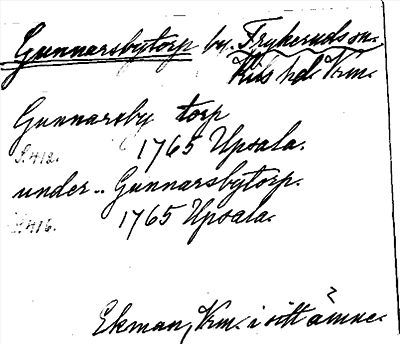 Gunnarsbytorp by. Frykeruds sn.
Kils hd. Vrm.
Gunnarsby torp
S. 412. 1765 Upsala.
under .. Gunnarsbytorp.
S. 416. 1765 Upsala.
?
Ekman, Vrm. i sitt ämne.